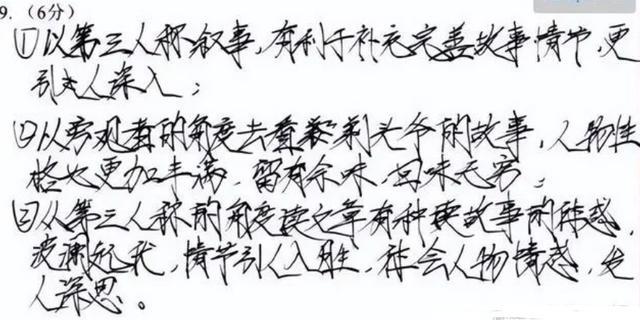 9.（6分）
①以第三人称叙事，有利于补充完善故事情节，更
引人深入；
②以旁观者的角度去看剃头爷的故事，人物性
格也更加丰满，留有余味，回味无穷；
③从第三人称的角度读文章有种听故事的体感，
波澜起伏，情节引人入胜，体会人物情感，发
人深思。